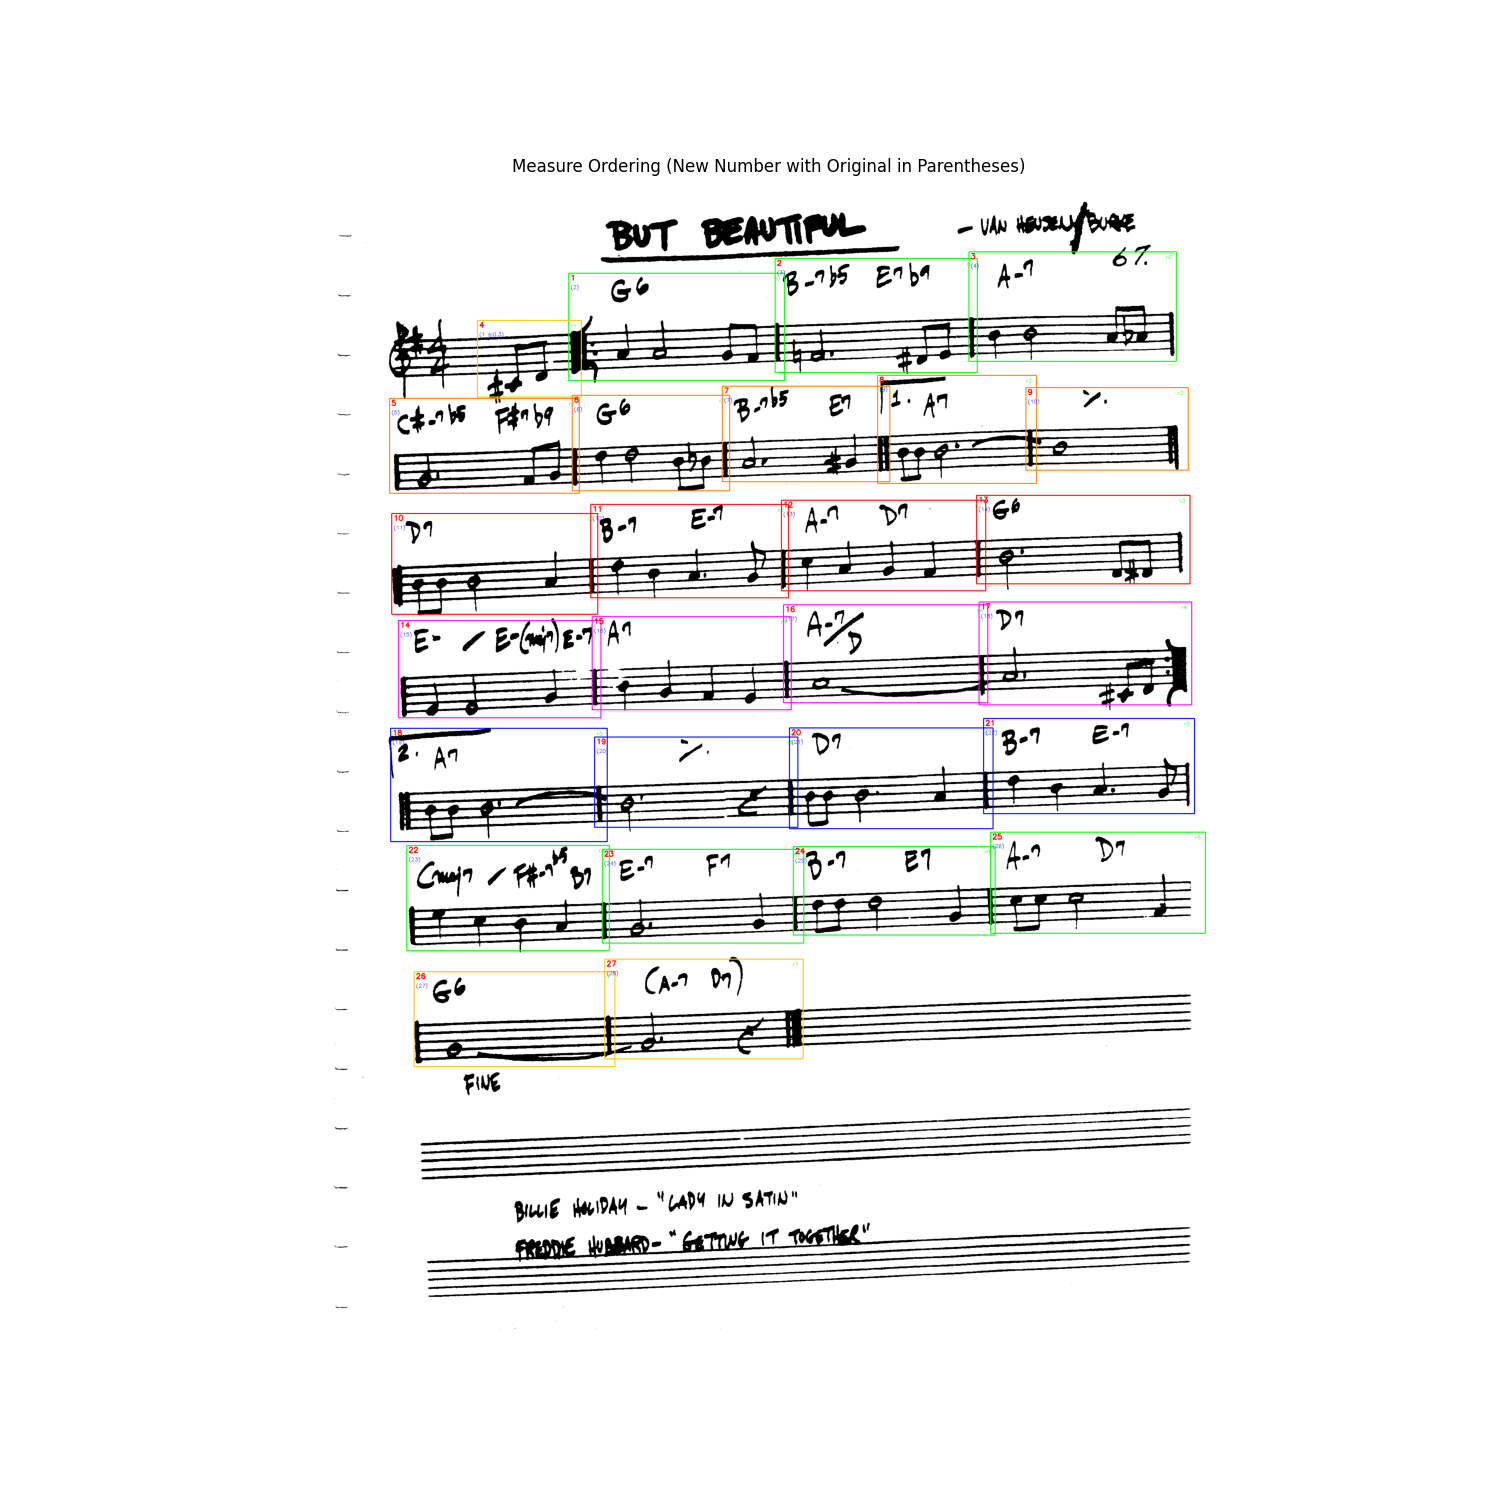 Measure Ordering (New Number with Original in Parentheses)
BUT BEAUTIFUL
- VAN HEUSEN/BURKE
67.
1 (2) G6
2 (3) B-7b5 E7b9
3 (4) A-7
4
5 (5) C#-7b5 F#7b9
6 (6) G6
7 (7) B-7b5 E7
8 1. A7
9 (10) ٪.
10 (11) D7
11 B-7 E-7
12 (13) A-7 D7
13 (14) G6
14 (15) E- / E-(maj7) E-7
15 A7
16 A-7/D
17 (18) D7
18 2. A7
19 (20) ٪.
20 (21) D7
21 (22) B-7 E-7
22 (23) Cmaj7 / F#-7b5 B7
23 (24) E-7 F7
24 (25) B-7 E7
25 (26) A-7 D7
26 (27) G6
27 (28) (A-7 D7)
FINE
BILLIE HOLIDAY - "LADY IN SATIN"
FREDDIE HUBBARD - "GETTING IT TOGETHER"